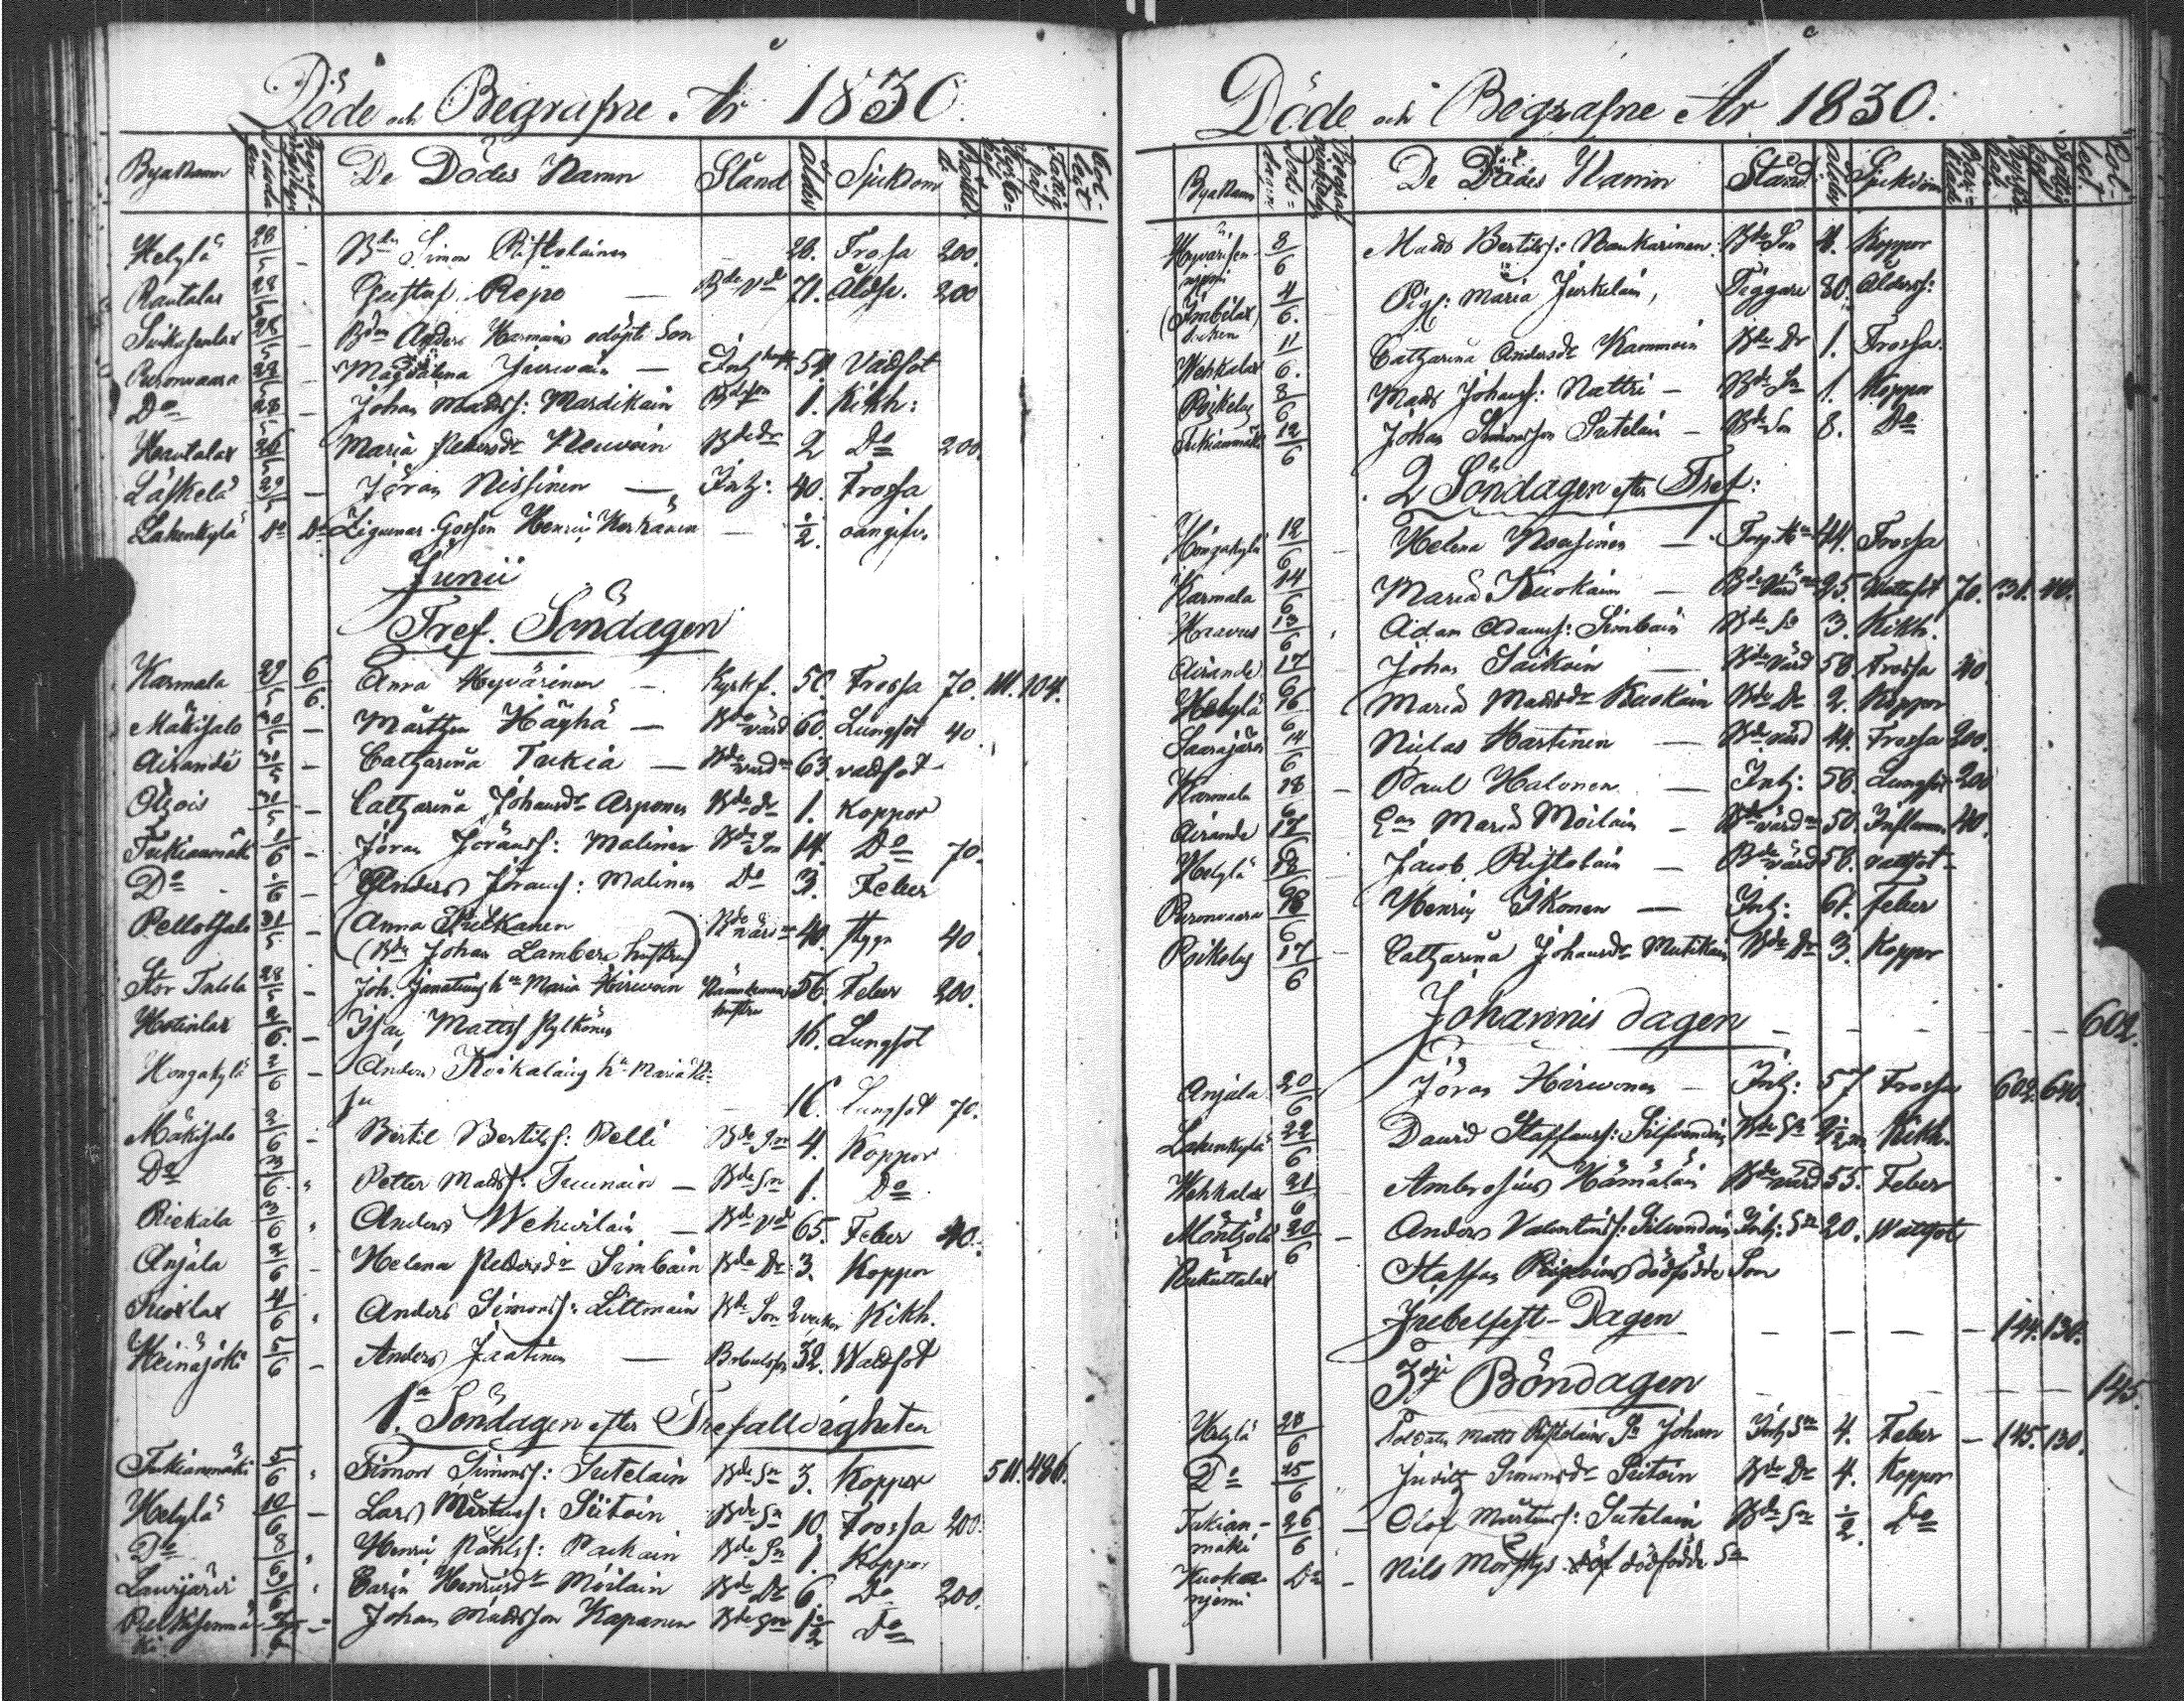 Döde och Begrafne År 1830.
ByaNamn De Dödes Namn Stånd Ålder Sjukdom
Helylä 28/5 - Bdn Simon Ristolainen 26. Frossa 200.
Rautalax 28/5 Gustaf Repo — Bde Vd 71. Åldr. 200
28/5 - Bdn Anders Karmains odöpte Son
Puronvaara 28/5 Magdalena — Inh hust 54 Vadsot
Do 28/5 - Johan Madss: Mardikain Bdeson 1. Kikh:
Hautalax 26/5 Maria Petersdr Neuvoin Bdedr 2 Do 200.
Läskelä 29/5 - Jöran Nissinen — Inh: 40. Frossa
Lahenkylä Do Do Gossen Henric Korhänen — 1/2. oangifv.
Junii
Tref. Söndagen
Karmala 29/5 6/6. Anna Hyvärinen - Kyrkf. 50. Frossa 70. 111. 104.
Mäkisalo 30/5 - Mårthen Häyhä — Bde värd 60. Lungsot 40
Airanda 31/5 - Catharina Tukia — Bde värdn 63. vadsot
Otsois 31/5 - Catharina Johansdr Arponen Bde dr 1. Koppor
Tukianmäki 1/6 - Jöran Jöranss: Malinen Bde Son 14. Do 70.
Do 1/6 - Anders Jöranss: Malinen Do 3. Feber
Pellotsalo 31/5 - (Anna Pulkanen Bde värdn 40. Hygn 40
(Bdn Johan Lambers hustru)
Stor Tulola 28/5 - Joh. hu Maria Hirwoin Nämndemans hustru 56. Feber 200.
Hotinlax 2/6. - Isac Mattss Pylkönen 16. Lungsot
Hongakylä 2/6 - Anders Koikalains hu Maria
16. Lungsot 70.
Mäkisalo 2/6 - Bertil Bertilss: Pelli Bde Sn 4. Koppor
Do 3/6. Petter Madss: Tuunain — Bde Sn 1. Do
Riekala 3/6 Anders Wehvilain — Bde Vd 65. Feber 40.
Anjala 3/6 Helena Pedersdr Simbain Bde Dr 3. Koppor
4/6 Anders Simonss: Littmain Bde Son 2 veckor Kikh.
Heinäjoki 5/6 - Anders Jaatinen — 32. Wadsot
1a Söndagen efter Trefalldigheten
Tukianmäki 5/6 Simon Simonss: Sutelain Bde Sn 3. Koppor 511. 486.
Helylä 10/6 - Lars Mårtenss: Siitoin Bde Sn 10. Frossa 200.
Do 8/6 Henric Påhlss: Paikain Bde Sn 1. Koppor
Lavijärvi 9/6 Carin Henricsdr Moilain Bde Dr 6. Do 200.
Johan Madsson Kapanen Bde Sn 1 1/2 Do
Döde och Begrafne År 1830.
ByaNamn De Dödes Namn Stånd Ålder Sjukdom
Hyvärisen niemi 3/6 Mads Bertilss: Naukarinen. Bde Son 4. Koppor
(Imbilax) 4/6. Pig: Maria Jurkelain, Tiggare 80. Ålderss:
Wehkalax 11/6. Catharina Andersdr Kammoin Bde Dr 1. Frossa.
Poikelus 8/6 Mads Johanss: Nattri - Bde Sn 1. Koppor
Tukianmäki 12/6 Johan Simonsson Sutelain - Bde Son 8. Do
2 Söndagen efter Tref:
Hongakylä 12/6 - Helena Nousinen — 44. Frossa
Karmala 14/6 Maria Kuokain — Bde Värdn 95. Wattusot 70. 131. 40.
13/6 Adam Adamss: Simbain Bde So 3. Kikh.
Airanda 17/6 Johan Saikoin — Bde värd 58. Frossa 40.
Helylä 16/6 Maria Madsdr Kuokain Bde Dr 2. Koppor
Saarajärvi 14/6 Niclas Hartinen — Bde värd 44. Frossa 200.
Karmala 18/6 - Paul Halonen — Inh: 58. Lungsot 200
Airanda 17/6 Maria Moilain — Bde värdn 50. Inflamm. 40.
Helylä 18/6 - Jacob Ristolain — Bde värd 58. vattsot
Puronvaara 18/6 Henric Ikonen — Inh: 61. Feber
Poikelus 17/6 - Catharina Johansdr Mutikain Bde Dr 3. Koppor
Johannis dagen — — — — 602.
Anjala 20/6 Jöran Hirwonen — Inh: 57 Frossa 602. 640.
Lahenkylä 22/6 David Staffanss: Silfvendoin Bde Sn Kikh.
Wehkalax 21/6 - Ambrosius Hämäläin Bde värd 55. Feber
Möntsölä 20/6 - Anders Valentinss: Silvendoin Inh: Sn 20. Wattsot
Rukuttalax Staffan dödfödde Son
Jubelfest-Dagen — — — — 144. 130.
3dje Böndagen — — — — 145.
Helylä 23/6 Soldaten Matts Ristolains Sn Johan Inh Sn 4. Feber — 145. 130.
Do 25/6 Judith Simonsdr Siitoin Bde Dr 4. Koppor
Tukian-mäki 26/6 - Olof Mårtenss: Sutelain Bde Sn 1/2. Do
Kuokaniemi Do - Nils Morskys dödfödde Sn